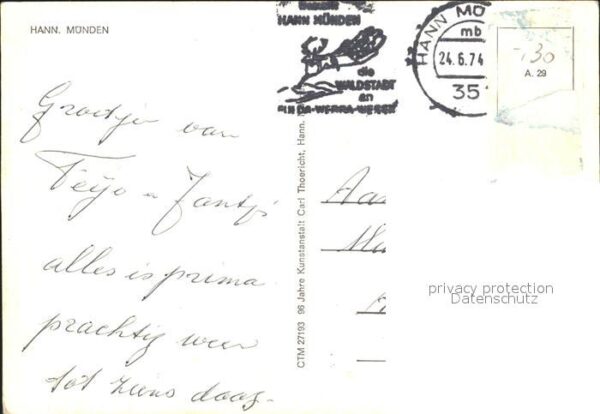 HANN. MÜNDEN
Groetjes van
Feijo - Jantje
alles is prima
prachtig weer
tot ziens daag-
HANN MÜNDEN
die
WALDSTADT
an
FULDA-WERRA-WESER
HANN MÜ
mb
24.6.74
351
-,30
A. 29
CTM 27193 96 Jahre Kunstanstalt Carl Thoericht, Hann.
Aa
privacy protection
Datenschutz